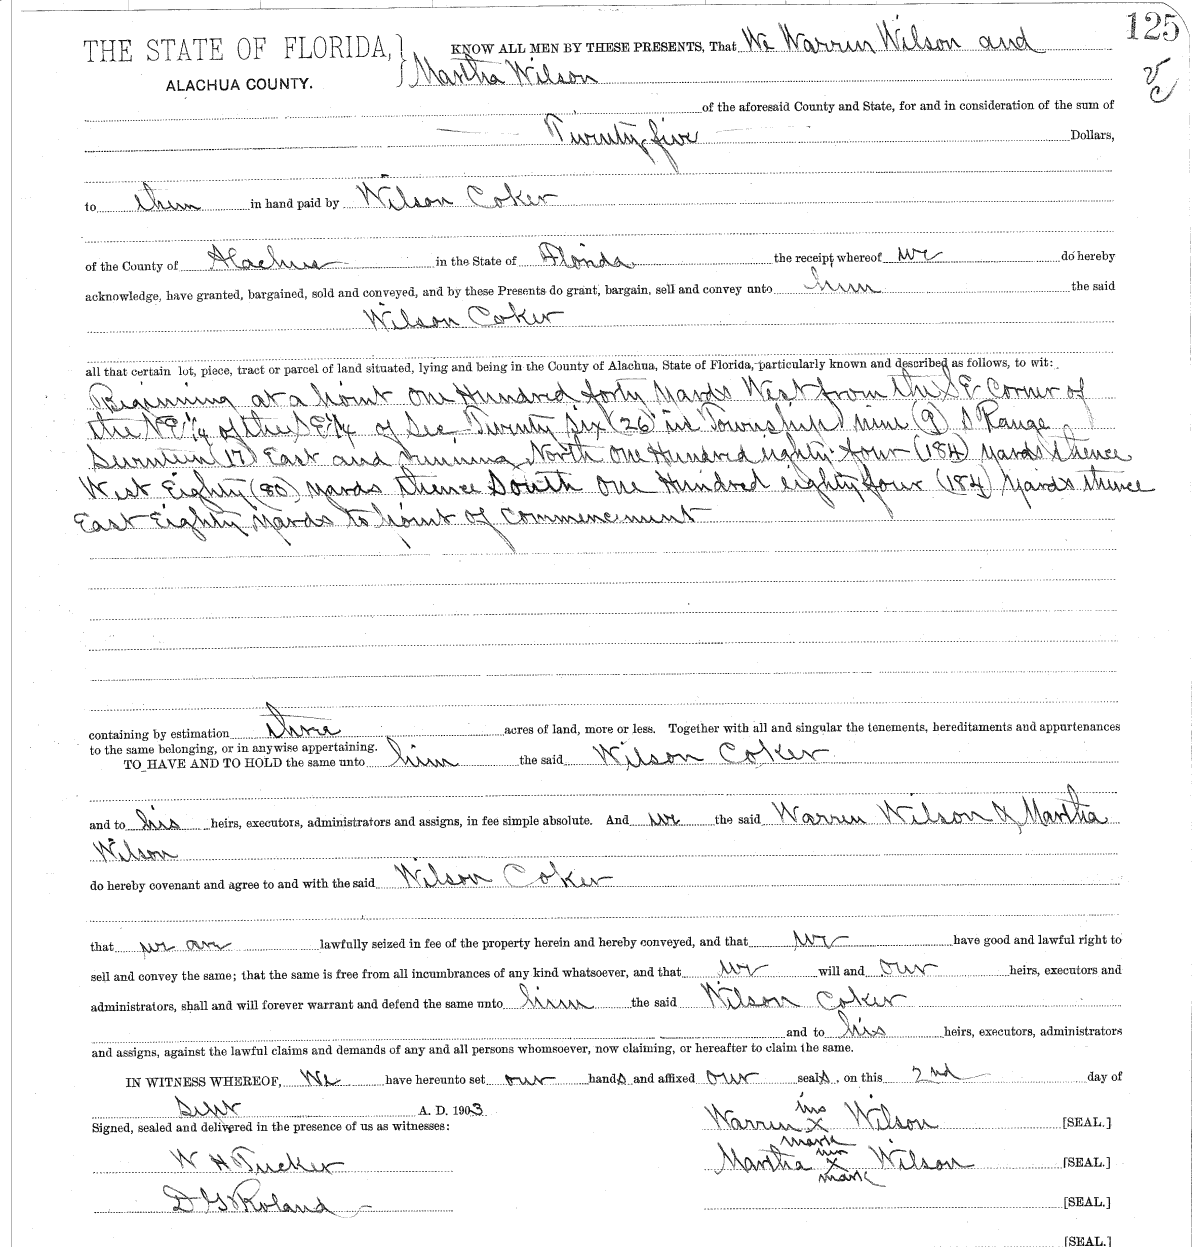 125
THE STATE OF FLORIDA, } KNOW ALL MEN BY THESE PRESENTS, That We Warren Wilson and
ALACHUA COUNTY. Martha Wilson
of the aforesaid County and State, for and in consideration of the sum of
Twenty five Dollars,
to them in hand paid by Wilson Coker
of the County of Alachua in the State of Florida the receipt whereof we do hereby
acknowledge, have granted, bargained, sold and conveyed, and by these Presents do grant, bargain, sell and convey unto him the said
Wilson Coker
all that certain lot, piece, tract or parcel of land situated, lying and being in the County of Alachua, State of Florida, particularly known and described as follows, to wit:
Beginning at a point One Hundred forty yards West from the S.E. Corner of
the NE 1/4 of the SE 1/4 of Sec Twenty six (26) in Township nine (9) S Range
Seventeen (17) East and running North One Hundred eighty-four (184) yards thence
West Eighty (80) yards thence South One Hundred eighty four (184) yards thence
East Eighty yards to point of commencement
containing by estimation three acres of land, more or less. Together with all and singular the tenements, hereditaments and appurtenances
to the same belonging, or in anywise appertaining.
TO HAVE AND TO HOLD the same unto him the said Wilson Coker
and to his heirs, executors, administrators and assigns, in fee simple absolute. And we the said Warren Wilson & Martha
Wilson
do hereby covenant and agree to and with the said Wilson Coker
that we are lawfully seized in fee of the property herein and hereby conveyed, and that we have good and lawful right to
sell and convey the same; that the same is free from all incumbrances of any kind whatsoever, and that we will and our heirs, executors and
administrators, shall and will forever warrant and defend the same unto him the said Wilson Coker
and to his heirs, executors, administrators
and assigns, against the lawful claims and demands of any and all persons whomsoever, now claiming, or hereafter to claim the same.
IN WITNESS WHEREOF, We have hereunto set our hands and affixed our seals, on this 2nd day of
Sept A. D. 1903
Signed, sealed and delivered in the presence of us as witnesses:
his
Warren X Wilson [SEAL.]
mark
W H Tucker
her
Martha X Wilson [SEAL.]
mark
D G Roland [SEAL.]
[SEAL.]